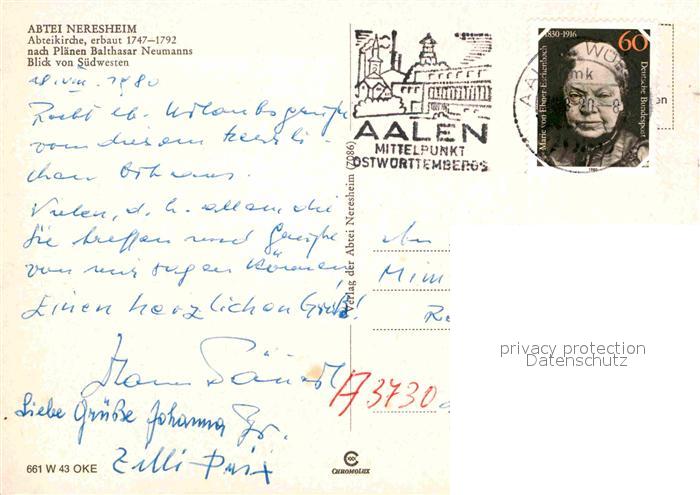 ABTEI NERESHEIM
Abteikirche, erbaut 1747–1792
nach Plänen Balthasar Neumanns
Blick von Südwesten
18. VIII. 1980
Recht lb. Urlaubsgrüße
von diesem herrli-
chen
Vielen, d. h. allen, die
Sie treffen und Grüße
von mir sagen können,
Einen herzlichen Gruß!
Liebe Grüße Johanna
Zilli
661 W 43 OKE
Verlag der Abtei Neresheim (7086)
CHROMOLUX
AALEN
MITTELPUNKT
OSTWÜRTTEMBERGS
1830-1916
60
Marie von Ebner-Eschenbach
Deutsche Bundespost
AALEN, WÜR
mk
-8
on
An
Mim
A 3730
privacy protection
Datenschutz